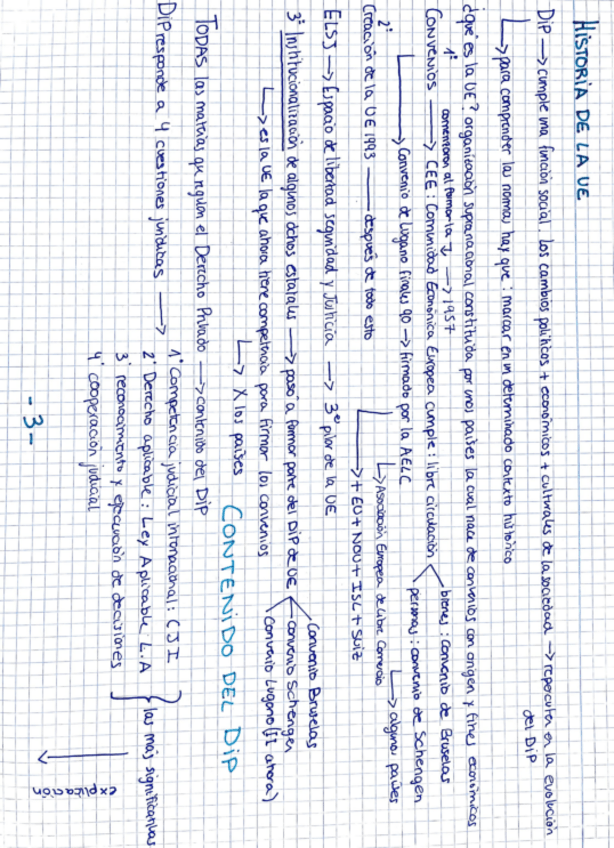 HISTORIA DE LA UE
DIP → cumple una función social. Los cambios políticos + económicos + culturales de la sociedad → repercuten en la evolución del DIP
↳ para comprender las normas hay que: marcar en un determinado contexto histórico
¿Qué es la UE? organización supranacional constituida por unos países la cual nace de convenios con origen y fines económicos
1º comenzaron al formarla → 1957
CONVENIOS → CEE: Comunidad Económica Europea cumple: libre circulación
bienes: convenio de Bruselas
personas: convenio de Schengen
↳ Convenio de Lugano finales 90 → firmado por la AELC
↳ Asociación Europea de Libre Comercio
↳ algunos países
2º Creación de la UE 1993 — después de todo esto
↳ + EU + NOU + ISL + SUIZ
ELSJ → Espacio de libertad seguridad y Justicia → 3er pilar de la UE
3º Institucionalización de algunos dchos estatales → pasó a formar parte del DIP de UE
Convenio Bruselas
convenio Schengen
Convenio Lugano (II ahora)
↳ es la UE la que ahora tiene competencia para firmar los convenios
↳ X los países
CONTENIDO DEL DIP
TODAS las materias que regulan el Derecho Privado → contenido del DIP
DIP responde a 4 cuestiones jurídicas →
1º Competencia judicial internacional: CJI
2º Derecho aplicable: Ley Aplicable: L.A
3º reconocimiento y ejecución de decisiones
4º cooperación judicial
} las más significativas
explicación
-3-